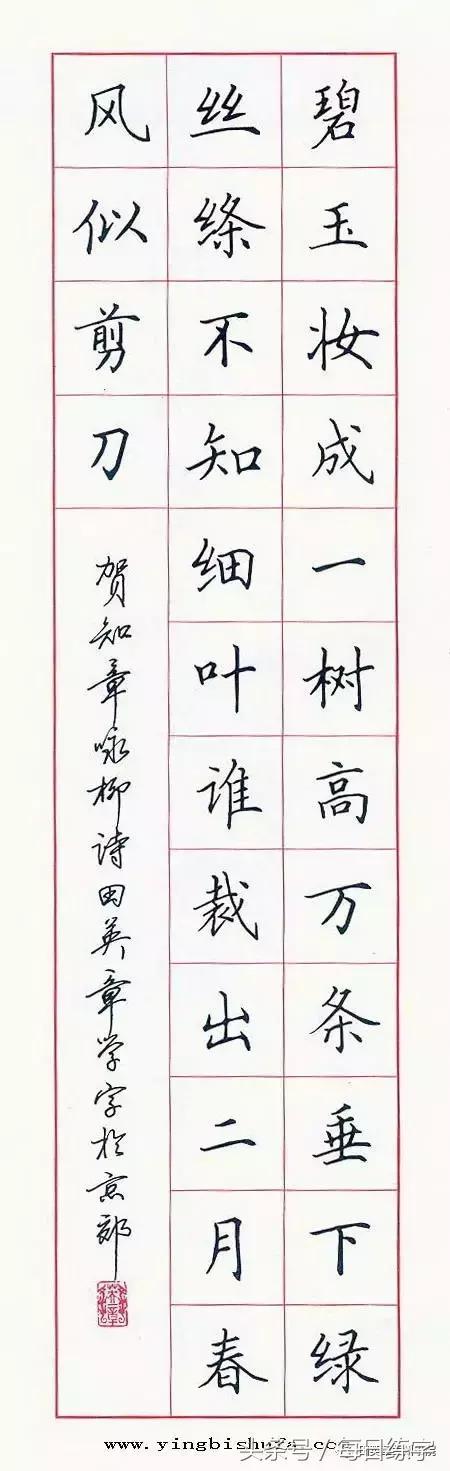 碧玉妆成一树高万条垂下绿
丝绦不知细叶谁裁出二月春
风似剪刀
贺知章咏柳诗田英章学字於京郊
英章
www.yingbishufa.cc
头条号/每日练字